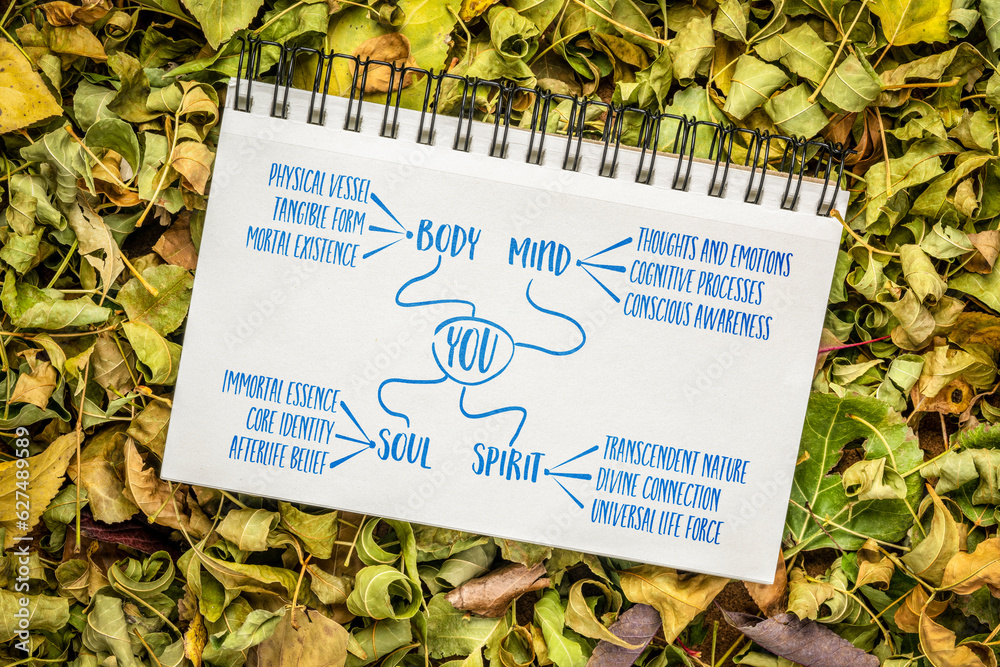 PHYSICAL VESSEL
TANGIBLE FORM
MORTAL EXISTENCE
BODY
MIND
THOUGHTS AND EMOTIONS
COGNITIVE PROCESSES
CONSCIOUS AWARENESS
YOU
IMMORTAL ESSENCE
CORE IDENTITY
AFTERLIFE BELIEF
SOUL
SPIRIT
TRANSCENDENT NATURE
DIVINE CONNECTION
UNIVERSAL LIFE FORCE
Adobe Stock | # 627489589